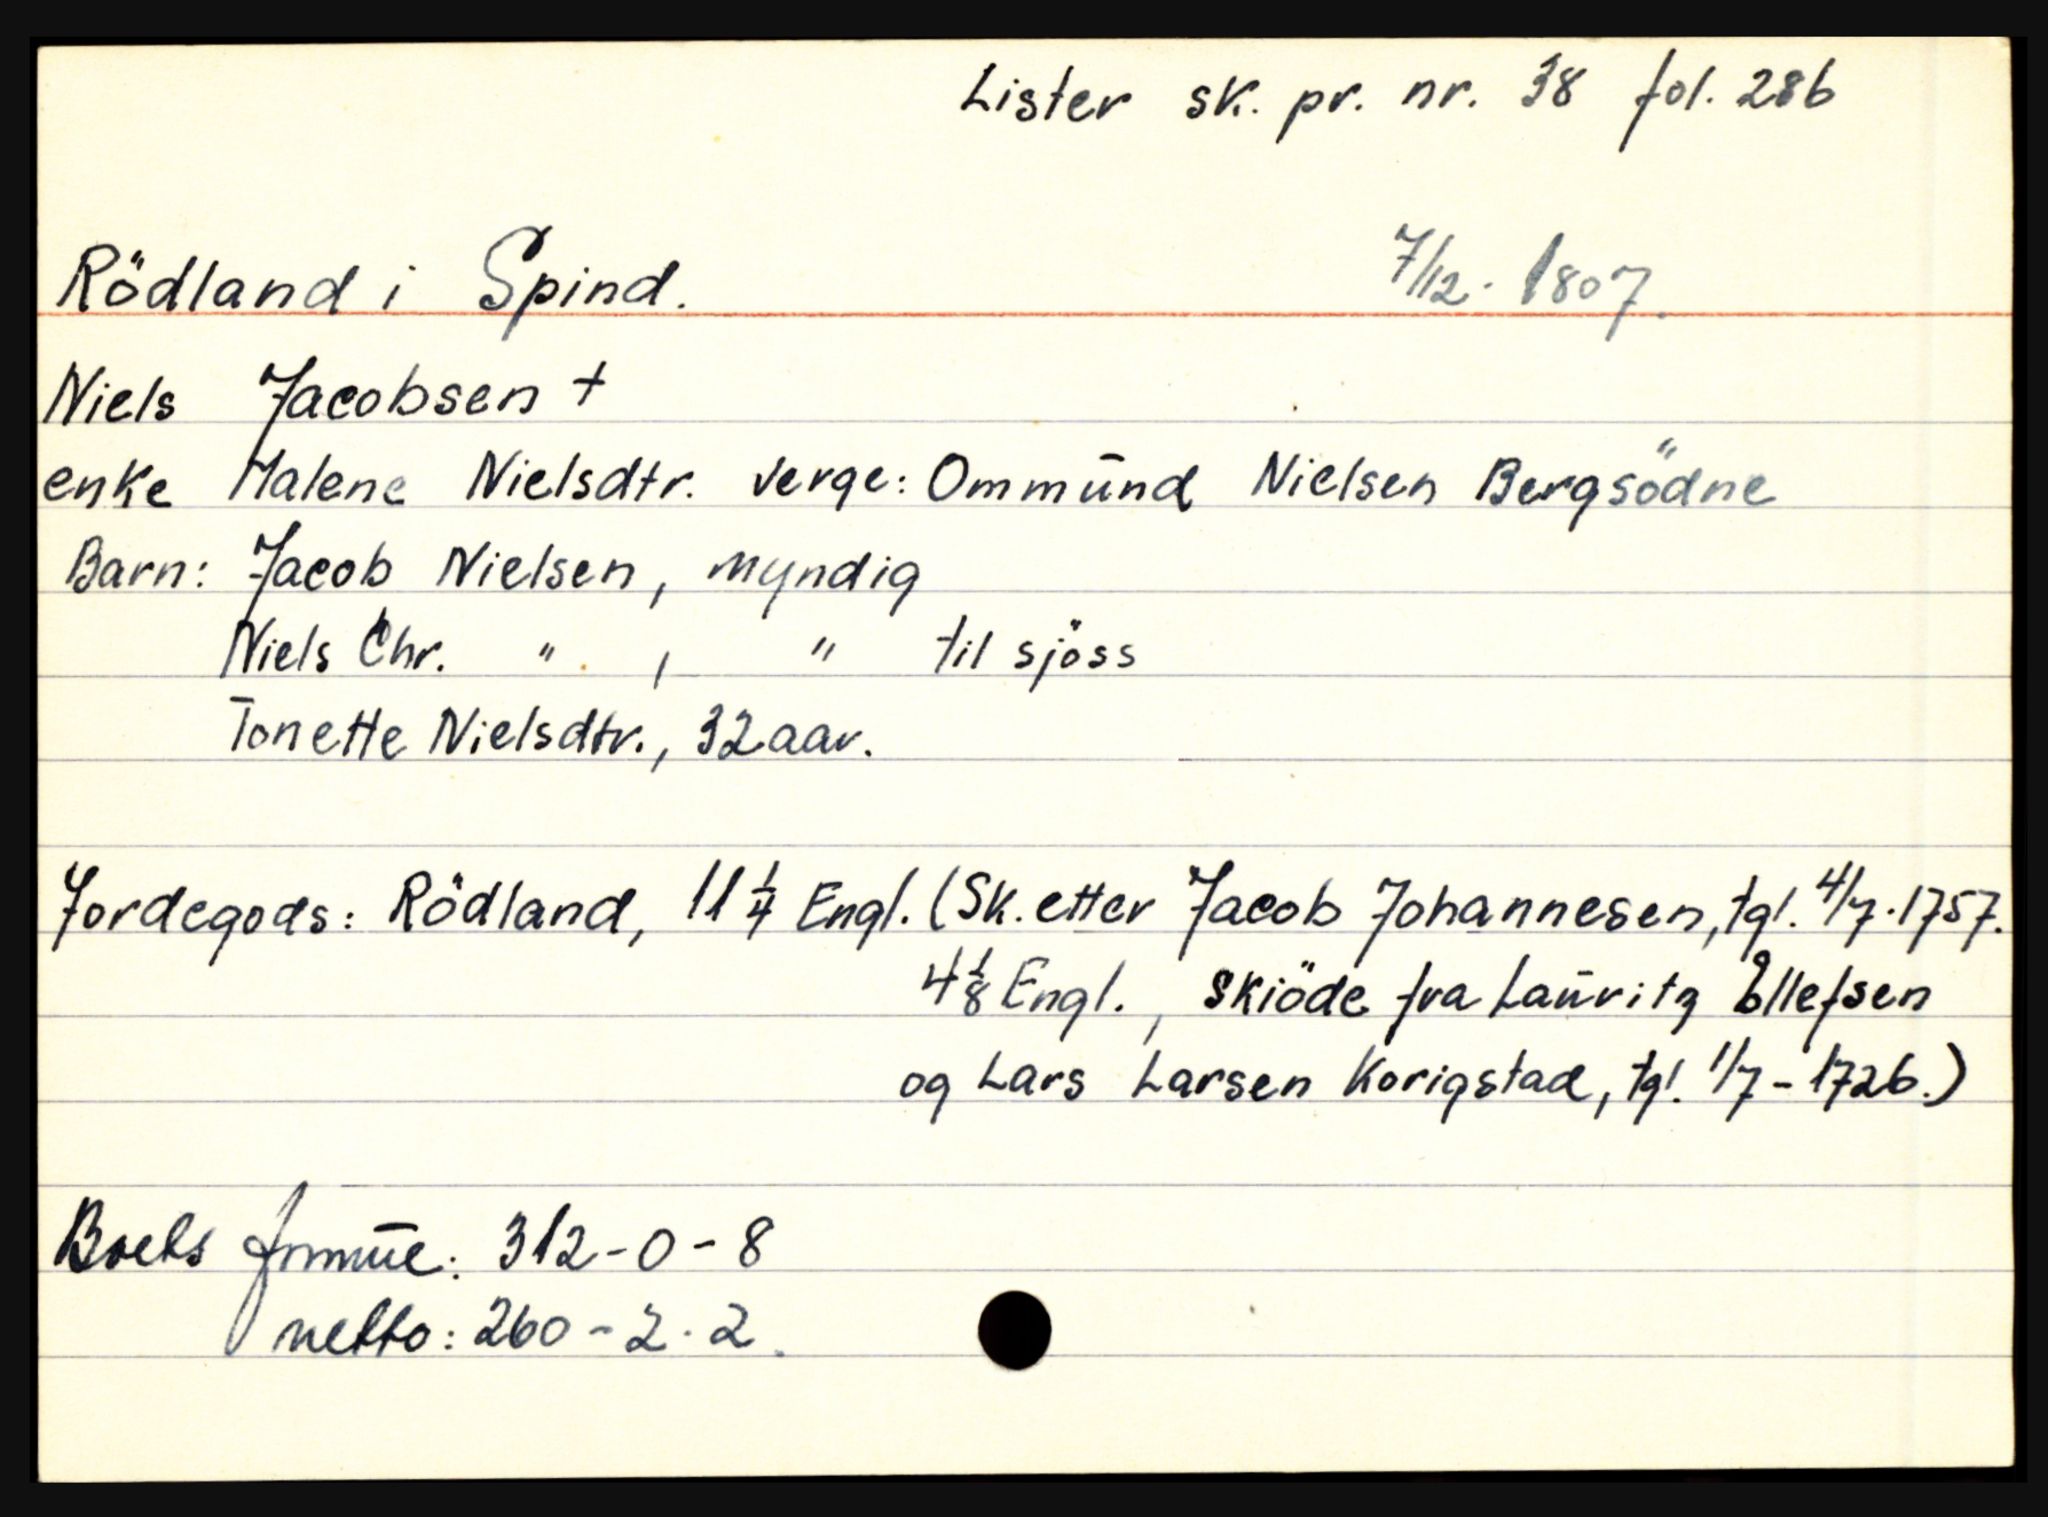 Lister sk. pr. nr. 38 fol. 286
Rödland i Spind. 7/12. 1807.
Niels Jacobsen +
enke Malene Nielsdtr. verge: Ommūnd Nielsen Bergsödne
Barn: Jacob Nielsen, myndig
Niels Chr. " , " til sjöss
Tonette Nielsdtr., 32 aar.
Jordegods: Rödland, 11 1/4 Engl. (Sk. etter Jacob Johannesen, tgl. 4/7. 1757.
4 1/8 Engl., skiöde fra Laūritz Ellefsen
og Lars Larsen Korigstad, tgl. 1/7 - 1726.)
Boets formūe: 312-0-8
netto: 260-2.2.